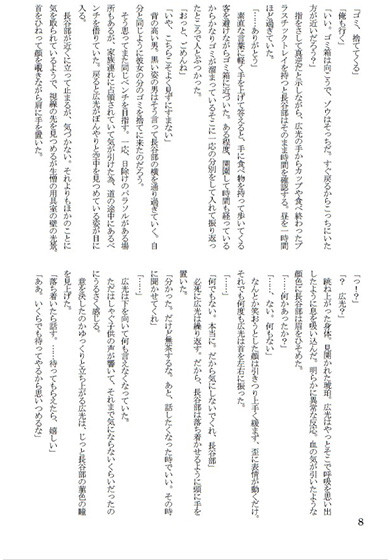 「ゴミ、捨ててくる」
「俺も行く」
「いい。ゴミ箱は向こうで、ゾウはそっちだ。すぐ戻るからこっちにいた
方が近いだろう？」
　指をさして真逆だと示しながら、広光の手からカップや食べ終わったプ
ラスチックトレイを持つと長谷部はそのまま時間を確認する。昼を一時間
ほど過ぎていた。
「……ありがとう」
　素直な言葉に軽く手を上げて答えると、手に食べ物を持って歩いてくる
客を避けながらゴミ箱に近づいた。ある程度、開園して時間も経っている
からかなりゴミが溜まっているそこに一応の分別をして入れて振り返っ
たところで人とぶつかった。
「おっと、ごめんね」
「いや、こちらこそよく見ずにすまない」
　背の高い男。黒い姿の男はそう言って長谷部の横を通り過ぎていく。自
分と同じように彼も自分の分のゴミを捨てに来たのだろう。
　そう思ってまた同じベンチを目指す。一応、日除けのパラソルがある場
所もあるが、家族連れに占領されていて気が引けた為、道の途中にあるベ
ンチを借りていた。戻ると広光がぼんやりと空中を見つめている姿が目に
入る。
　長谷部が近くに立って止まるが、気づかない。それよりもほかのことに
気を取られているようで、視線の先を見つめるが生憎の用具室の壁の光景。
首をひねって顔を覗きながら肩に手を置いた。
「っ！？」
「？　広光？」
　跳ね上がった身体。見開かれた琥珀。広光はやっとそこで呼吸を思い出
したように息を吸い込んだ。明らかに異常な反応。血の気が引いたような
顔色に長谷部は眉をひそめた。
「……何かあったか？」
「……ない。何もない」
　なんとか笑おうとした顔は引きつり上手く緩まず、歪に表情が動くだけ。
それでも何度も広光は首を左右に振った。
「……」
「何でもない。本当に。だから気にしないでくれ、長谷部」
　必死に広光は繰り返す。だから、長谷部は落ち着かせるように頭に手を
置いた。
「分かった。だけど無茶するな。あと、話したくなった時でいい。その時
に聞かせてくれ」
「……」
　広光は下を向いて何も言えなくなっていた。
　ただはしゃぐ子供の声が響いて、それまで気にならないくらいだったの
にうるさく感じる。
　意を決したのかゆっくりと立ち上がる広光は、じっと長谷部の菫色の瞳
を見上げた。
「落ち着いたら話す。……待ってもらえたら、嬉しい」
「ああ、いくらでも待ってやるから思いつめるな」
8